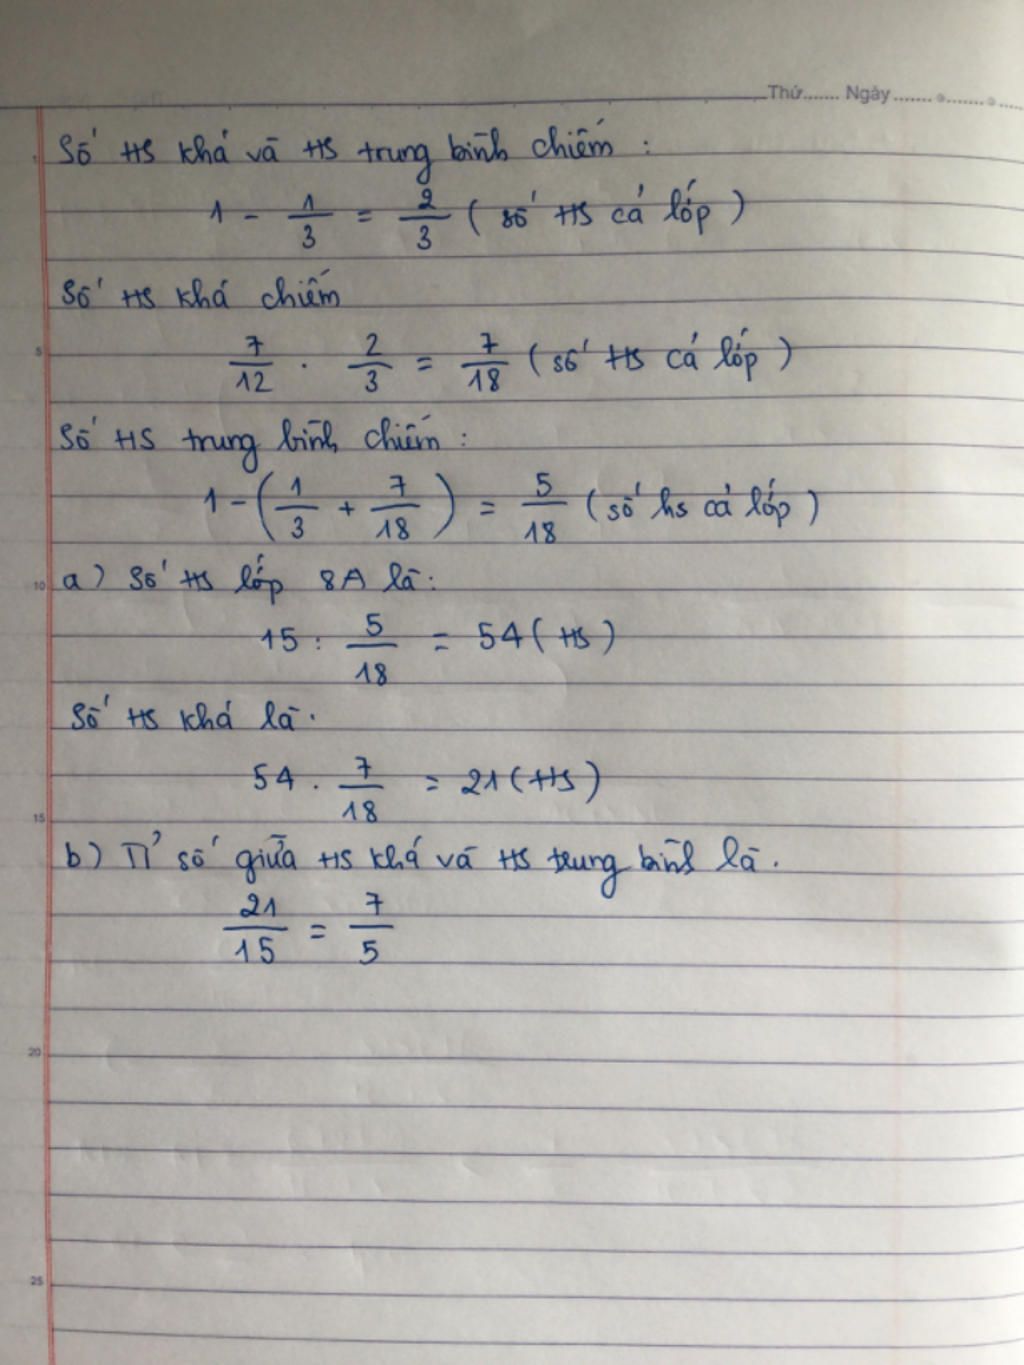 Thứ....... Ngày...................
Số HS khá và HS trung bình chiếm :
1 - 1/3 = 2/3 ( số HS cả lớp )
Số HS khá chiếm
5
7/12 . 2/3 = 7/18 ( số HS cả lớp )
Số HS trung bình chiếm :
1 - ( 1/3 + 7/18 ) = 5/18 ( số hs cả lớp )
10
a) Số HS lớp 8A là :
15 : 5/18 = 54 ( HS )
Số HS khá là .
54 . 7/18 = 21 ( HS )
15
b) Tỉ số giữa HS khá và HS trung bình là .
21/15 = 7/5
20
25